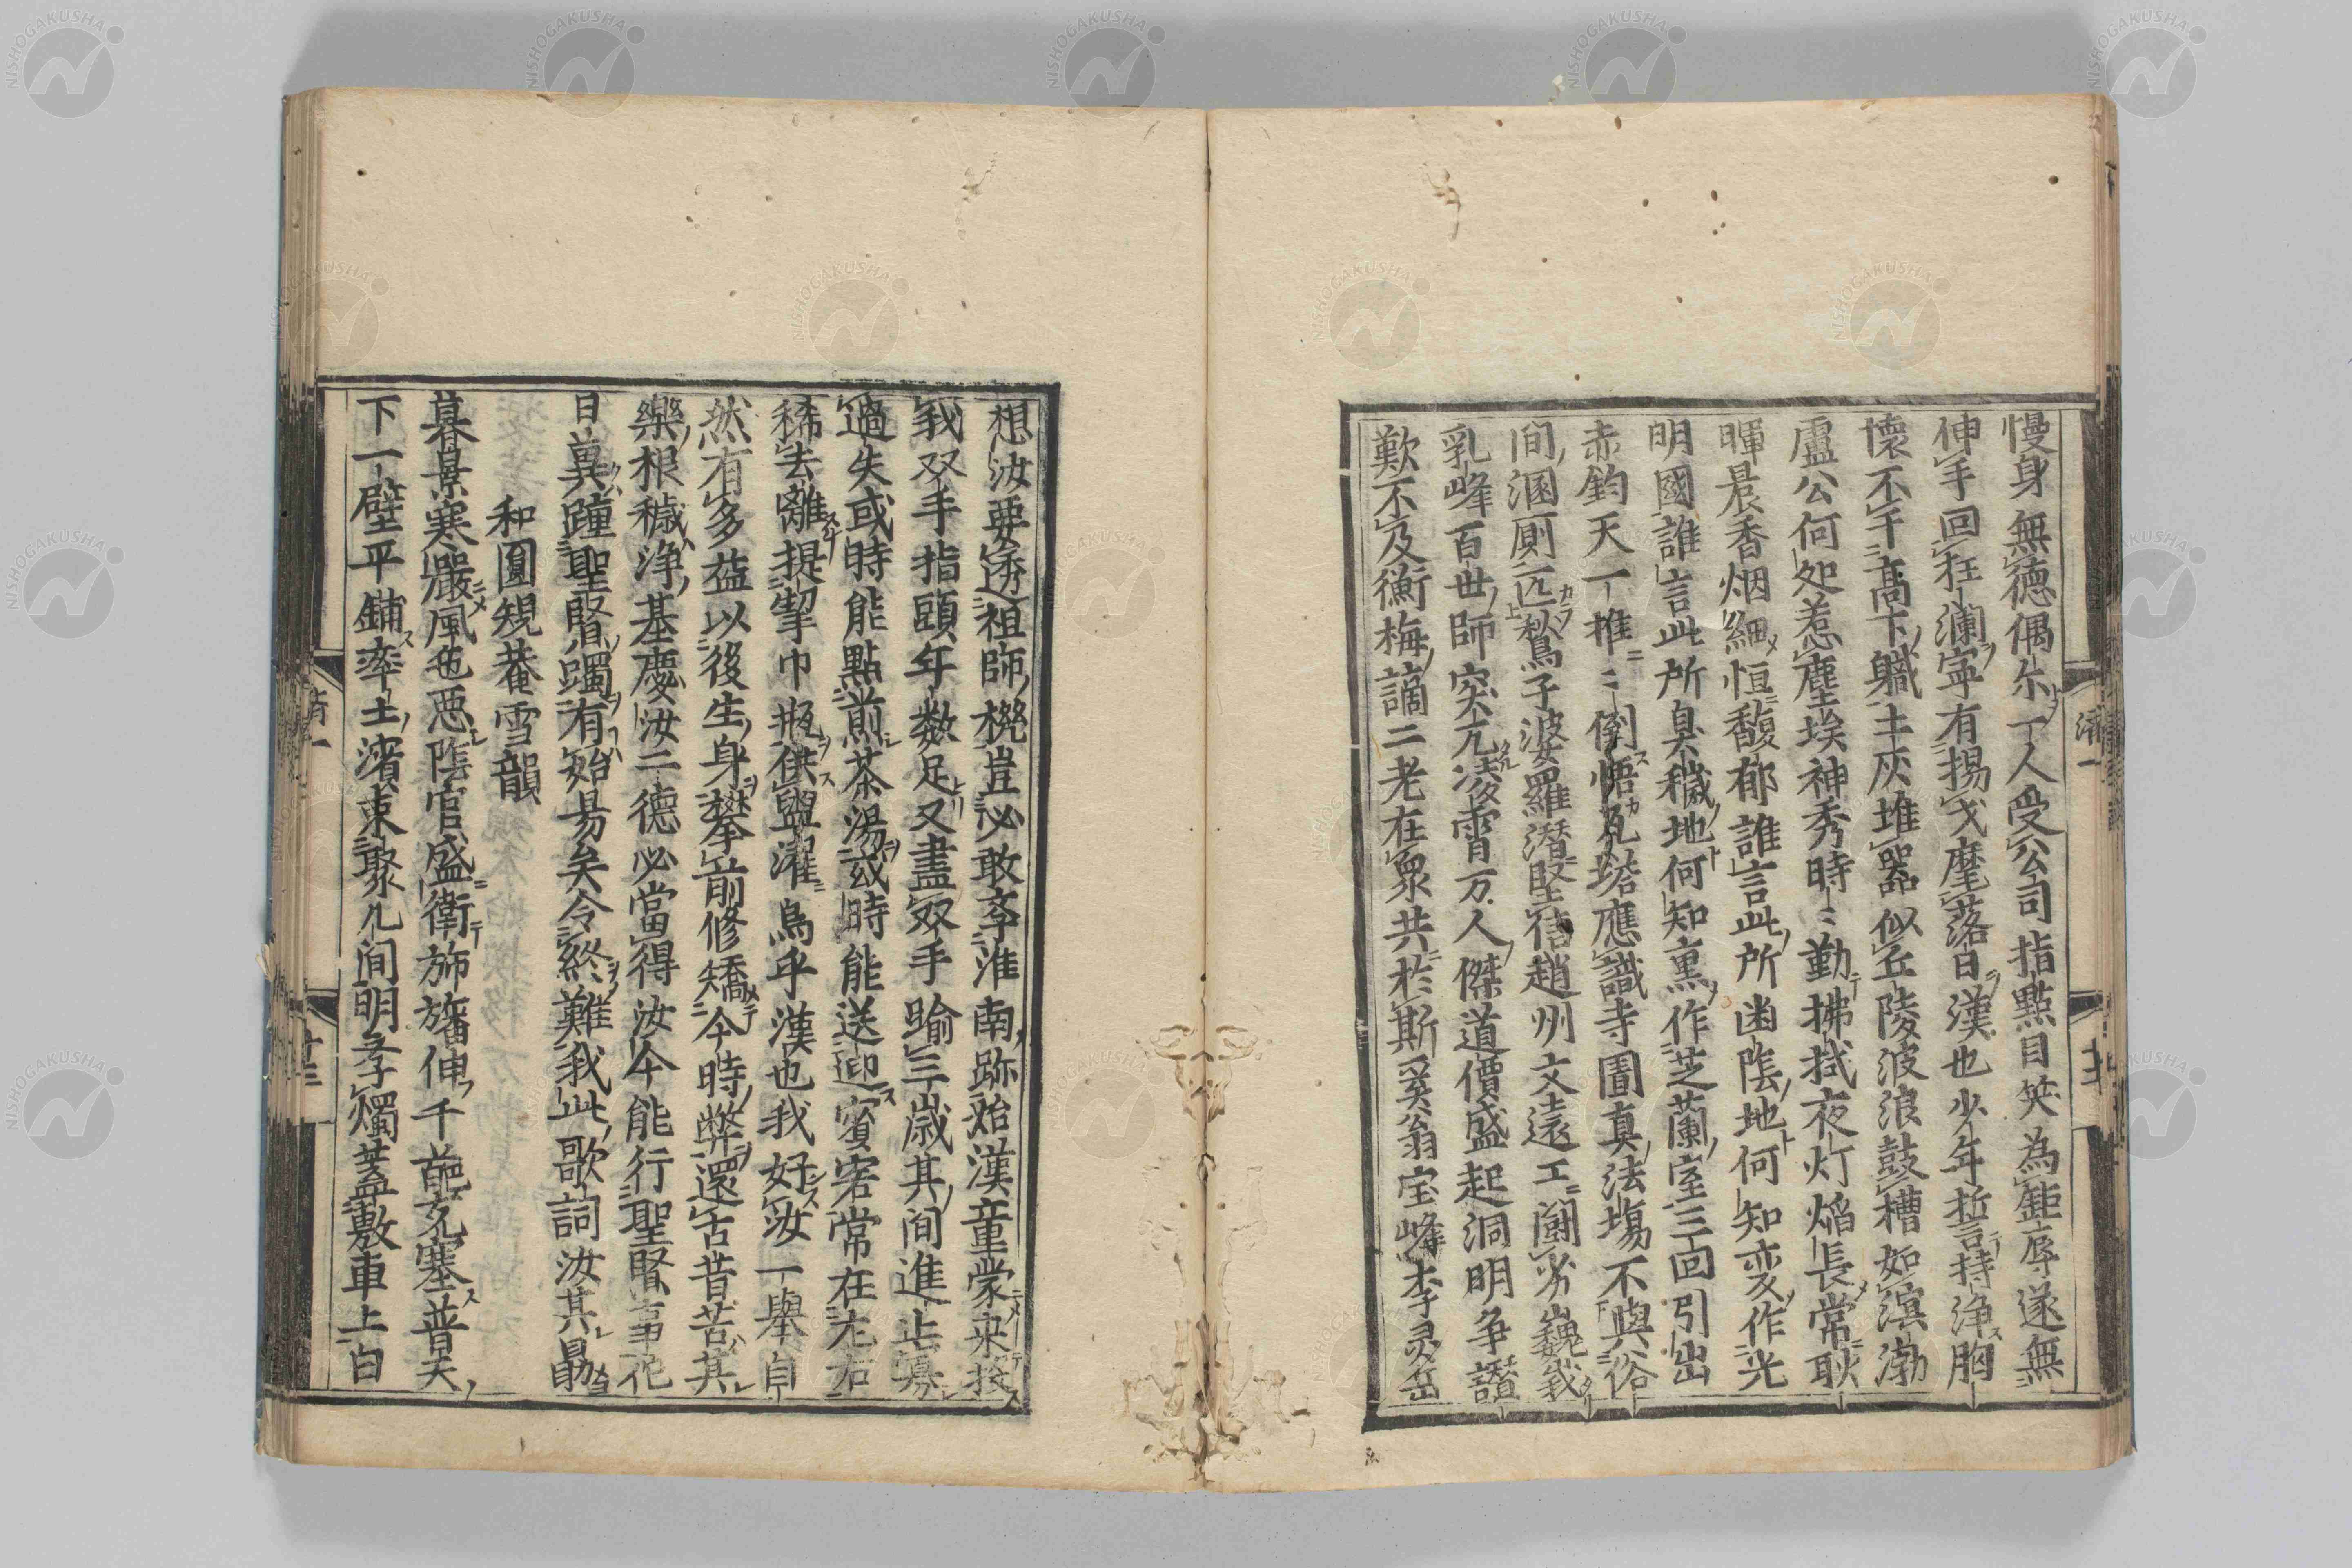 慢身無徳偶尓丁人受公司指點目笑為鉅辱遂無
伸手回狂瀾寧有揚戈麾落日漢也少年誓持浄胸
懐不干高下職主灰堆器似丘陵波浪鼓槽如溟渤
盧公何処惹塵埃神秀時〻勤拂拭夜灯焔長常耿
暉晨香烟細恒馥郁誰言此所幽陰地何知変作光
明國誰言此所臭穢地何知熏作芝蘭室三回引出
赤釣天丁推〻倒悟瓦塔應識寺圊真法場不與俗
間溷厠匹鶖子婆羅潜堅信趙州文遠工闘劣巍我
乳峰百世師突兀凌霄万人傑道價盛起洞明争讃
歎不及衡梅謫二老在象共於斯奚翁宝峰李灵岳
想汝要透祖師機豈必敢孝淮南跡始漢童蒙来投
我双手指頭年数足又盡双手踰三歳其間進止寡
過失或時能點煎茶湯或時能送迎賓客常在左右
稀去離提挈巾瓶供盥濯烏乎漢也我好汝一舉自
然有多益以後生身攀前修矯今時弊還古昔苦其
樂根穢浄基慶汝二德必當得汝今能行聖賢事花
日冀踵聖賢躅有始易矣令終難我此歌詞汝其勗
和圓規菴雪韻
暮景寒嚴風色悪陰官盛衛旆旛伸千葩充塞普天
下一壁平鋪率土濱束聚几間明孝燭蓋敷車上白
濟一